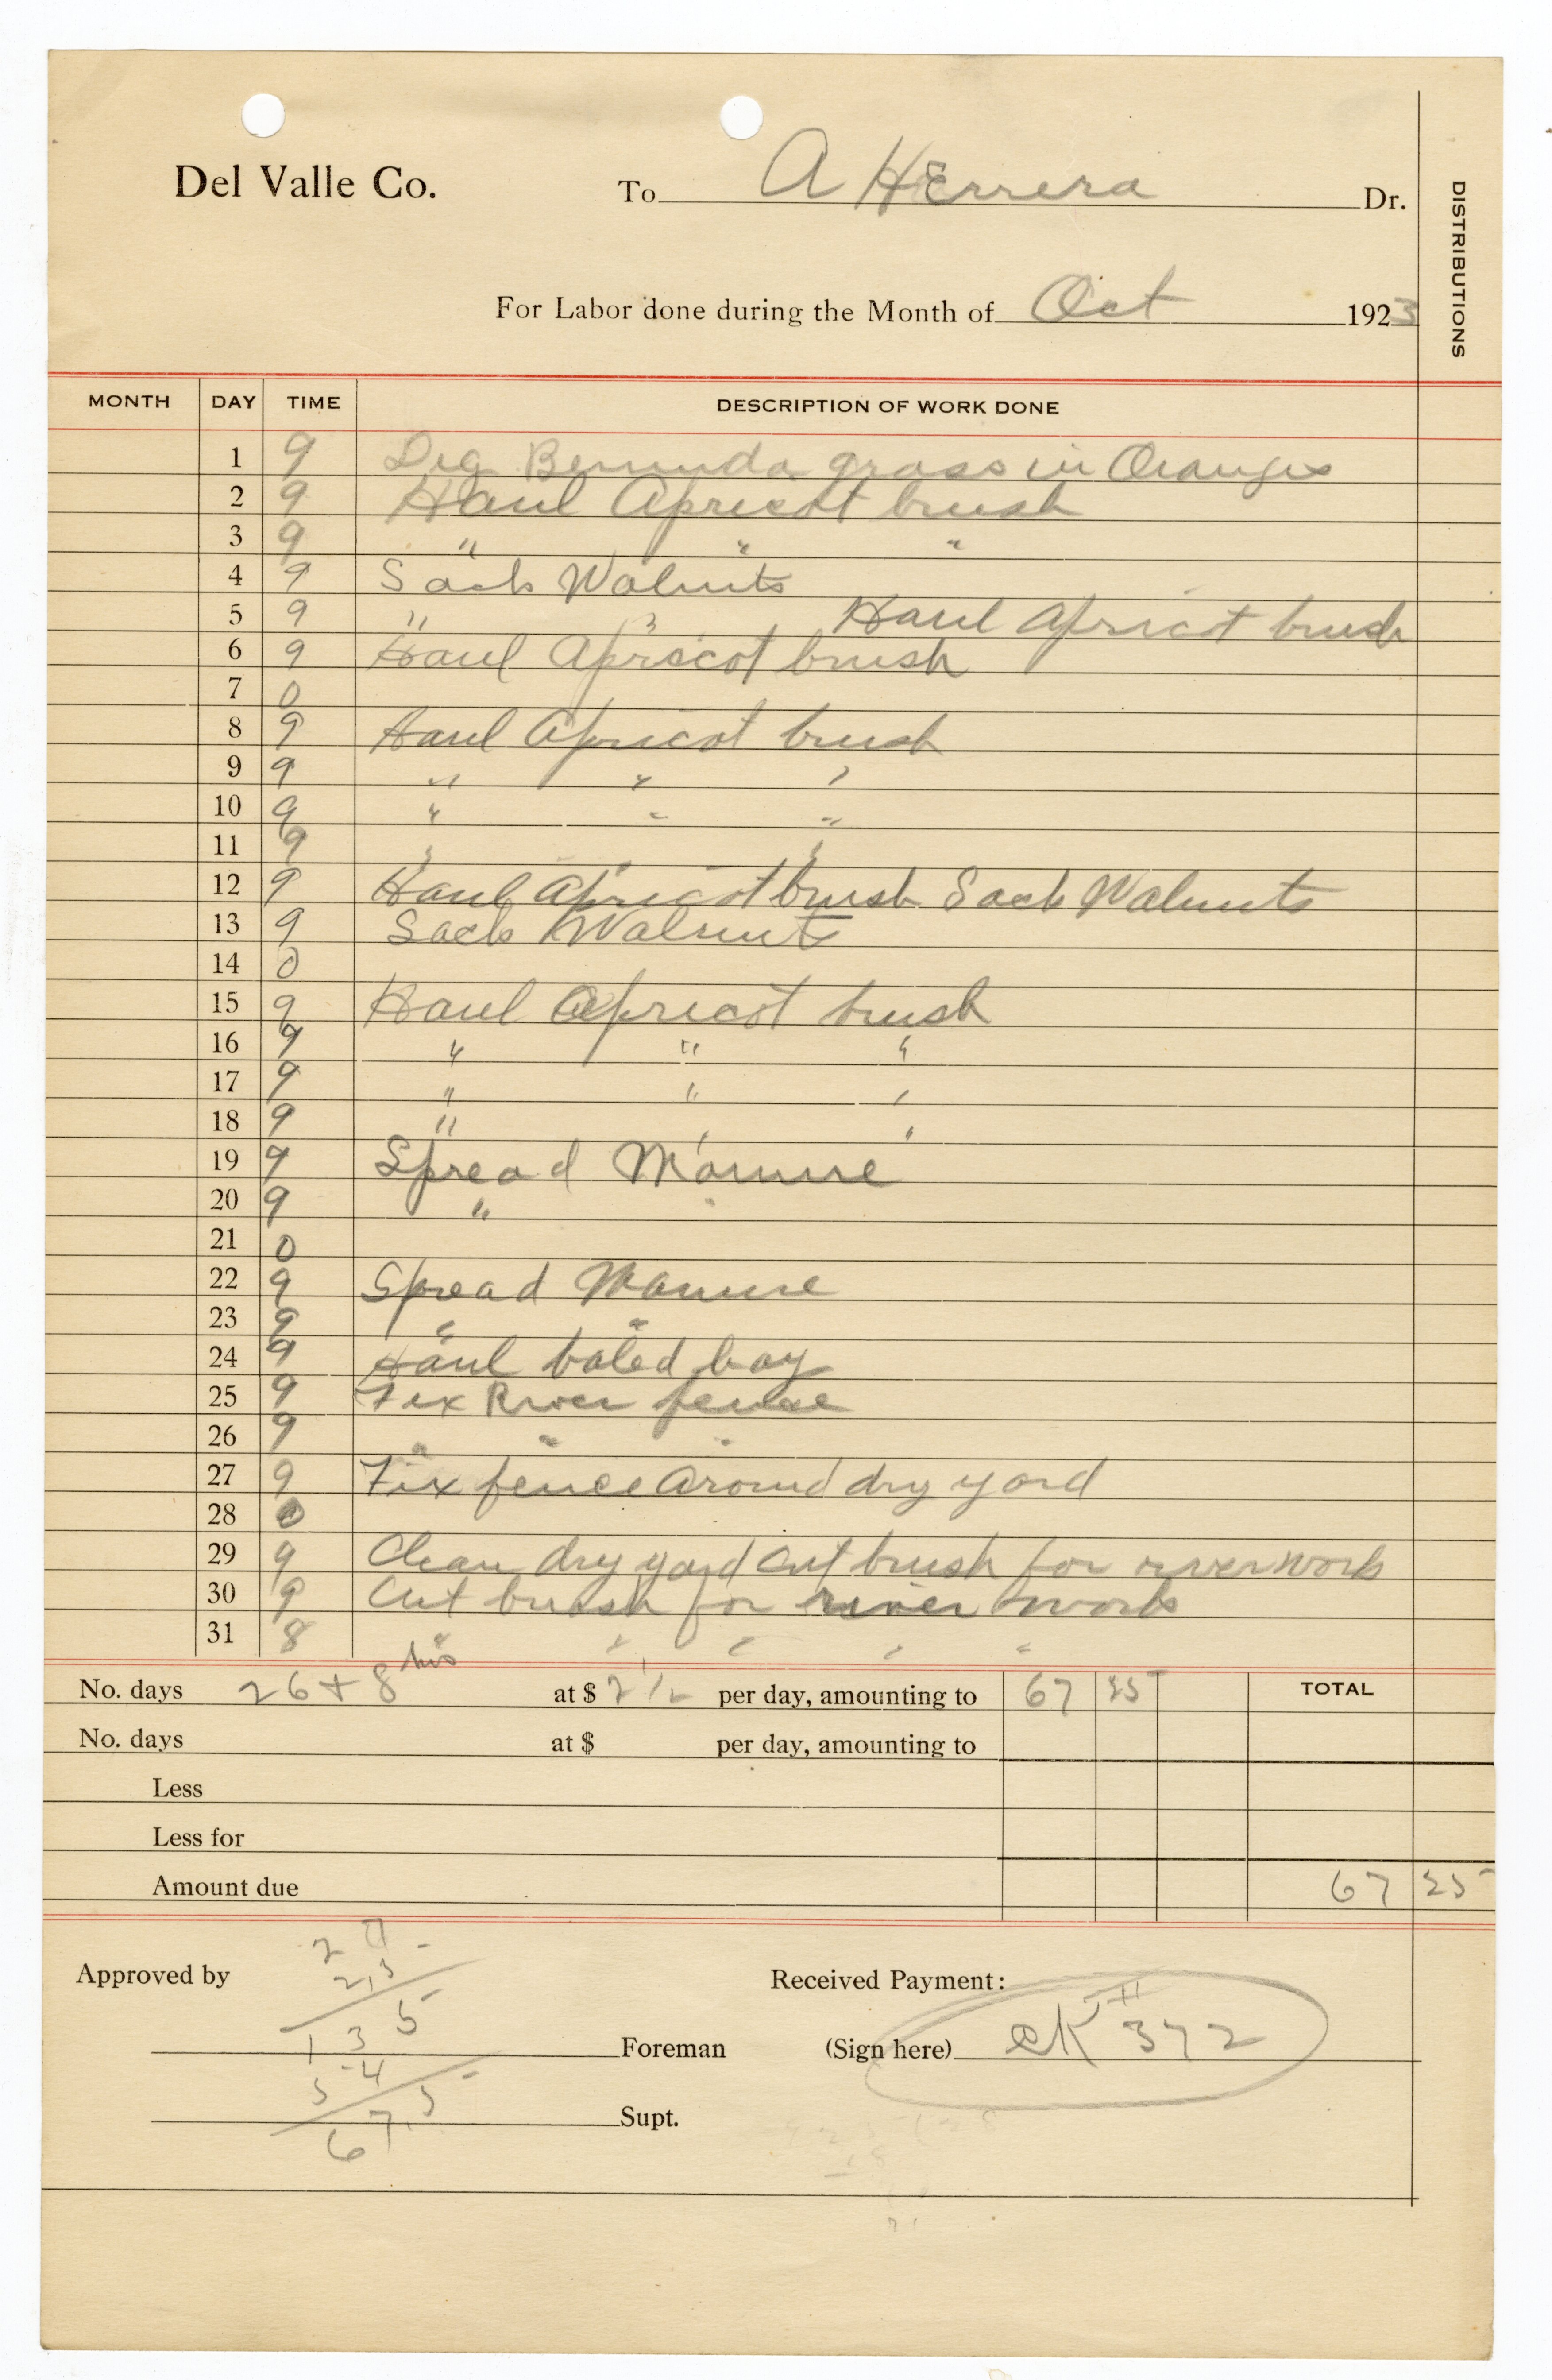 Del Valle Co. To A Herrera Dr.
DISTRIBUTIONS
For Labor done during the Month of Oct 1923
MONTH DAY TIME DESCRIPTION OF WORK DONE
1 9 Dig Bermuda grass in Oranges
2 9 Haul Apricot brush
3 9 " " "
4 9 Sack Walnuts
5 9 " " Haul Apricot brush
6 9 Haul Apricot brush
7 0
8 9 Haul Apricot brush
9 9 " " "
10 9 " " "
11 9 " "
12 9 Haul Apricot brush Sack Walnuts
13 9 Sack Walnuts
14 0
15 9 Haul Apricot brush
16 9 " " "
17 9 " " "
18 9 " " "
19 9 Spread Manure
20 9 " "
21 0
22 9 Spread Manure
23 9 " "
24 9 Haul baled hay
25 9 Fix River fence
26 9 " " "
27 9 Fix fence Around dry yard
28 0
29 9 Clean dry yard cut brush for river work
30 9 Cut brush for river work
31 8 " " " " "
No. days 26 + 8 hrs at $ 2 1/2 per day, amounting to 67 25 TOTAL
No. days at $ per day, amounting to
Less
Less for
Amount due 67 25
Approved by
2 7
2.5
Received Payment:
1 3 5
Foreman (Sign here) CK 372
5 4
Supt.
67.5